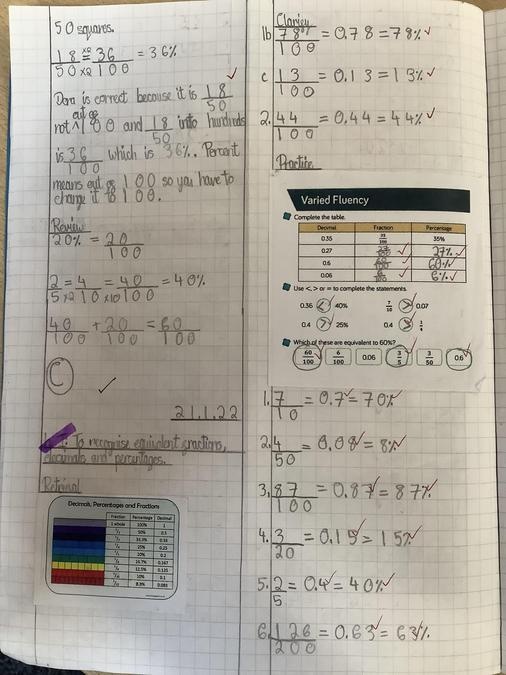 50 squares.
18 x2 = 36 = 36%
50 x2 100
Dora is correct because it is 18
50
not out of 100 and 18 into hundreds
50
is 36 which is 36%. Percent
100
means out of 100 so you have to
change it to 100.
Review
20% = 20
100
2 = 4 = 40 = 40%
5 x2 10 x10 100
40 + 20 = 60
100 100 100
C
21.1.22
To recognise equivalent fractions,
decimals and percentages.
Retrieval
Decimals, Percentages and Fractions
Fraction Percentage Decimal
1 whole 100% 1
1/2 50% 0.5
1/3 33.3% 0.33
1/4 25% 0.25
1/5 20% 0.2
1/6 16.7% 0.167
1/8 12.5% 0.125
1/10 10% 0.1
1/12 8.3% 0.083
Clarify
1b 78 = 0.78 = 78%
100
c 13 = 0.13 = 13%
100
2. 44 = 0.44 = 44%
100
Practice
Varied Fluency
Complete the table.
Decimal Fraction Percentage
0.35 35/100 35%
0.27 27/100 27%
0.6 60/100 60%
0.06 6/100 6%
Use <, > or = to complete the statements.
0.36 < 40% 7/10 > 0.07
0.4 > 25% 0.4 > 1/4
Which of these are equivalent to 60%?
60/100 6/100 0.06 3/5 3/50 0.6
1. 7 = 0.7 = 70%
10
2. 4 = 0.08 = 8%
50
3. 87 = 0.87 = 87%
100
4. 3 = 0.15 = 15%
20
5. 2 = 0.4 = 40%
5
6. 126 = 0.63 = 63%
200